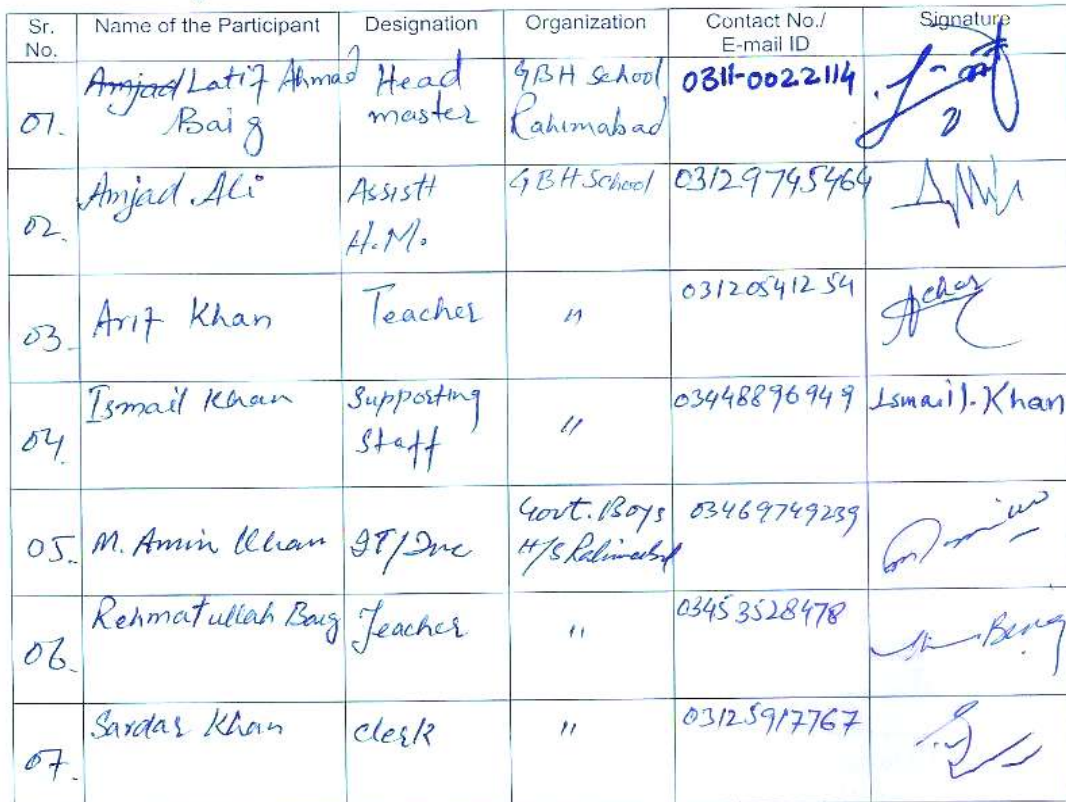 Sr. No. Name of the Participant Designation Organization Contact No./ E-mail ID Signature
01. Amjad Latif Ahmad Baig Head master GBH School Rahimabad 0311-0022114
02. Amjad Ali Assistt H.M. GBH School 03129745464
03. Arif Khan Teacher " 03120541254
04. Ismail Khan Supporting Staff " 03448896949 Ismail J. Khan
05. M. Amin Khan Govt. Boys H/S Rahimabad 03469749239
06. Rehmatullah Baig Teacher " 03453528478 Baig
07. Sardar Khan clerk " 03125917767